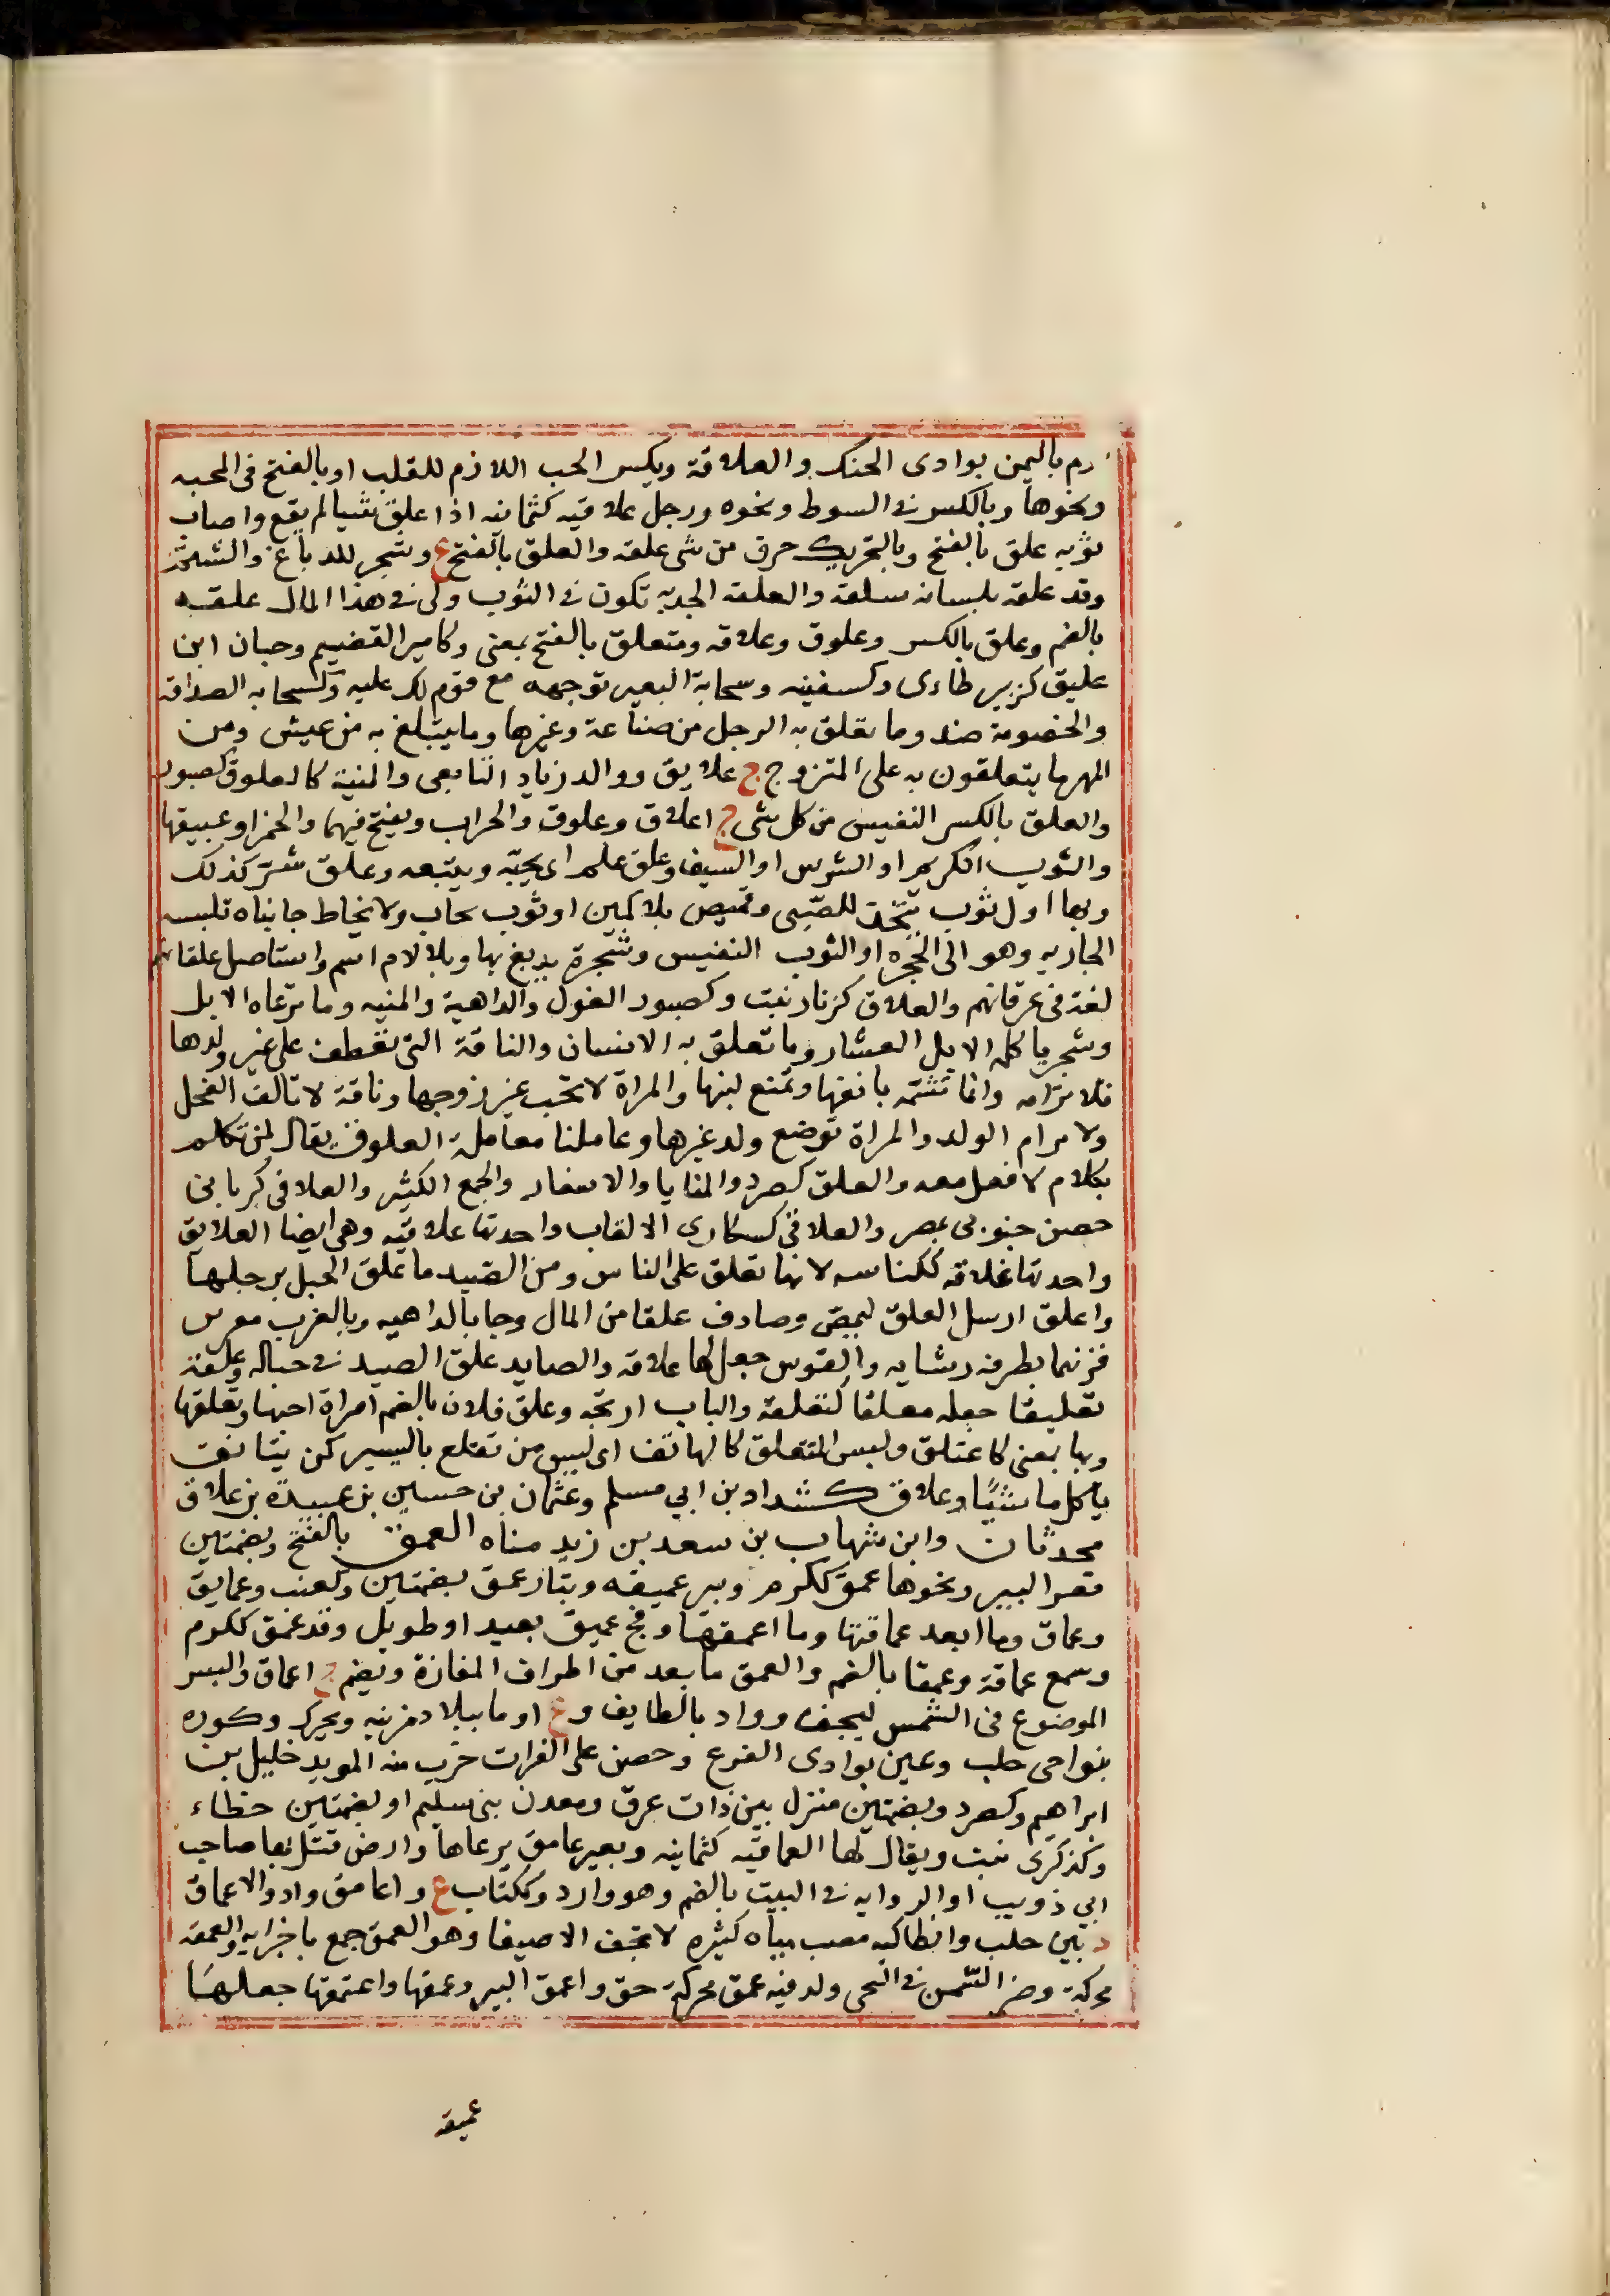 رم باليمن بوادى الحنك والعلاقة ويكسر الحب اللازم للقلب او بالفتح فى المحبه
ونحوها وبالكسر فى السوط ونحوه ورجل علاقيه كثمانيه اذا علق شيا لم يقع واصاب
ثوبه علق بالفتح وبالتحريك خرق من شى علقه والعلق بالفتح ع وشجر للدباغ والشتم
وقد علقه بلسانه سلقه والعلقه الجديه تكون فى الثوب ولى فى هذا المال علقه
بالضم وعلق بالكسر وعلوق وعلاقه ومتعلق بالفتح بمعنى وكامير القضيم وحبان ابن
عليق كزبير طاءى وكسفينه وسحابة البعير توجهه مع قوم لك عليه وكسحابه الصداقه
والخصومة ضد وما تعلق به الرجل من صناعة وغيرها وما يتبلغ به من عيش ومن
المهر ما يتعلقون به على المتزوج ج علايق ووالد زياد التابعى والمنية كالعلوق كصبور
والعلق بالكسر النفيس من كل شى ج اعلاق وعلوق والجراب ويفتح فيهما والخمر او عبيقها
والثوب الكريم او الترس او السيف وعلق علم اى يحبه ويتبعه وعلق شر كذلك
وبها اول ثوب يتخذ للصبى وقميص بلا كمين او ثوب يجاب ولا يخاط جانباه تلبسه
الجاريه وهو الى الحجزه او الثوب النفيس وشجرة يدبغ بها وبلا لام اسم واستاصل علقاتهم
لغة فى عرقاتهم والعلاق كزنار نبت وكصبور الغول والداهية والمنيه وما ترعاه الابل
وشجر ياكله الابل العشار وما تعلق به الانسان والناقة التى تعطف على غير ولدها
فلا ترامه وانما تشتمه بانفها وتمنع لبنها والمراة لا تحب غير زوجها وناقة لا تالف الفحل
ولا ترام الولد والمراة توضع ولد غيرها وعاملنا معاملة العلوق يقال لمن تكلم
بكلام لا فعل معه والعلق كصرد والمنايا والاشغار والجمع الكثير والعلاقى كربانى
حصن جنوبى بمصر والعلاقى كسكارى الالقاب واحدتها علاقيه وهى ايضا العلايق
واحدتها علاقه ككناسه لانها تعلق على الناس ومن الصيد ما علق الحبل برجلها
واعلق ارسل العلق ليمص وصادف علقا من المال وجا بالداهيه وبالغرب معرس
قرنهما بطرف رشايه والقوس جعل لها علاقه والصايد علق الصيد فى حباله وعلقه
تعليقا جعله معلقا لتعلقه والباب ارتجه وعلق فلان بالضم امراة احبها وتعلقها
وبها بمعنى كاعتلق وليس المتعلق كالمتانق اى ليس من تقتع باليسير كمن يتانق
ياكل ما شيا وعلاق كشداد بن ابي مسلم وعثمان بن حسين بن عبيدة بن علاق
محدثان وابن شهاب بن سعد بن زيد مناه العمق بالفتح وبضمتين
قعر البير ونحوها عمق ككرم وبير عميقه وبئار عمق بضمتين وكعنب وعمايق
وعماق وما ابعد عماقتها وما اعمقها وفج عميق بعيد او طويل وقد عمق ككرم
وسمع عماقة وعمقا بالضم والعمق ما بعد من اطراف المفازة ويضم ج اعماق والبسر
الموضوع فى الشمس ليجف وواد بالطايف وع او ما ببلاد مزينه ويحرك وكوره
بنواحى حلب وعين بوادى الفرع وحصن على الفرات خرب منه المويد خليل بن
ابراهيم وكصرد وبضمتين منزل بين ذات عرق ومعدن بنى سليم او بضمتين خطاء
وكذكرى نبت ويقال لها العماقيه كثمانيه وبعير عامق يرعاها وارض قتل بها صاحب
ابي ذويب او الروايه فى البيت بالضم وهو وارد وككتاب ع واعامق واد والاعماق
د بين حلب وانطاكيه مصب مياه كثيره لا تجف الا صيفا وهو العمق جمع باجزايه والعمقه
محركة وضر السمن فى النحى وله فيه عمق محركة حق واعمق البير وعمقها واعتمقها جعلها
عميقه